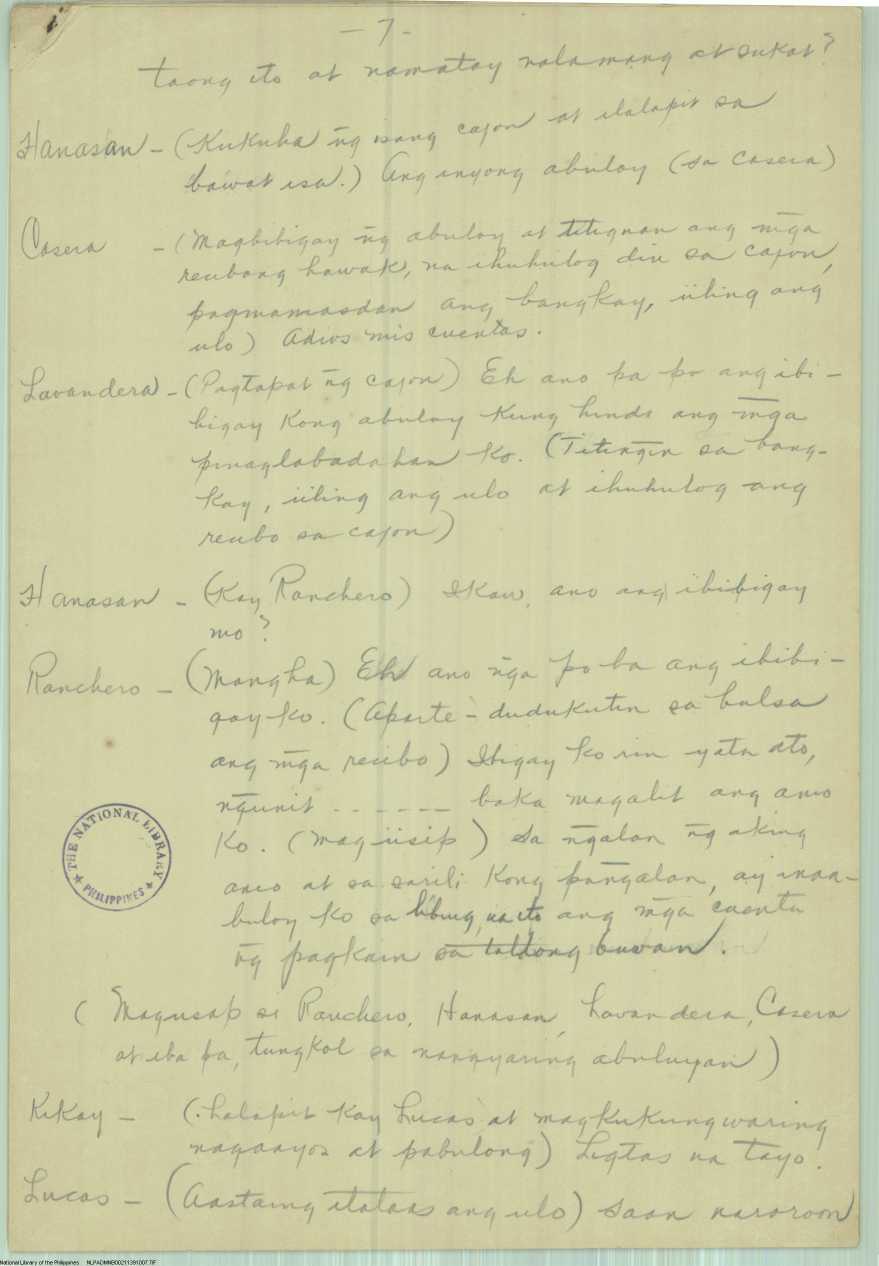 - 7 -
taong ito at namatay nalamang at sukat?
Hanasan - (Kukuha n̄g isang cajon at ilalapit sa
bawat isa.) Ang inyong abuloy (sa Casera)
Casera - (Magbibigay n̄g abuloy at titignan ang m̄ga
recibong hawak, na ihuhulog din sa cajon,
pagmamasdan ang bangkay, iiling ang
ulo) Adios mis cuentas.
Lavandera - (Pagtapat n̄g cajon) Eh ano pa po ang ibi-
bigay kong abuloy kung hindi ang m̄ga
pinaglabadahan ko. (Titin̄gin sa bang-
kay, iiling ang ulo at ihuhulog ang
recibo sa cajon)
Hanasan - (Kay Ranchero) Ikaw, ano ang ibibigay
mo?
Ranchero - (Mangha) Eh ano n̄ga po ba ang ibibi-
gay ko. (Aparte - dudukutin sa bulsa
ang m̄ga recibo) Ibigay ko rin yata ito,
n̄gunit - - - - - - baka magalit ang amo
ko. (magiisip) Sa n̄galan n̄g aking
amo at sa sarili kong pan̄galan, ay inaa-
buloy ko sa libing na ito ang m̄ga cuenta
n̄g pagkain sa tatlong buwan.
(Magusap si Ranchero, Hanasan, Lavandera, Casera
at iba pa, tungkol sa nangyaring abuluyan)
Kikay - (Lalapit kay Lucas at magkukungwaring
nagaayos at pabulong) Ligtas na tayo.
Lucas - (Aastaing itataas ang ulo) Saan naroroon
THE NATIONAL LIBRARY
PHILIPPINES
National Library of the Philippines NLPADMNB00211391007.TIF